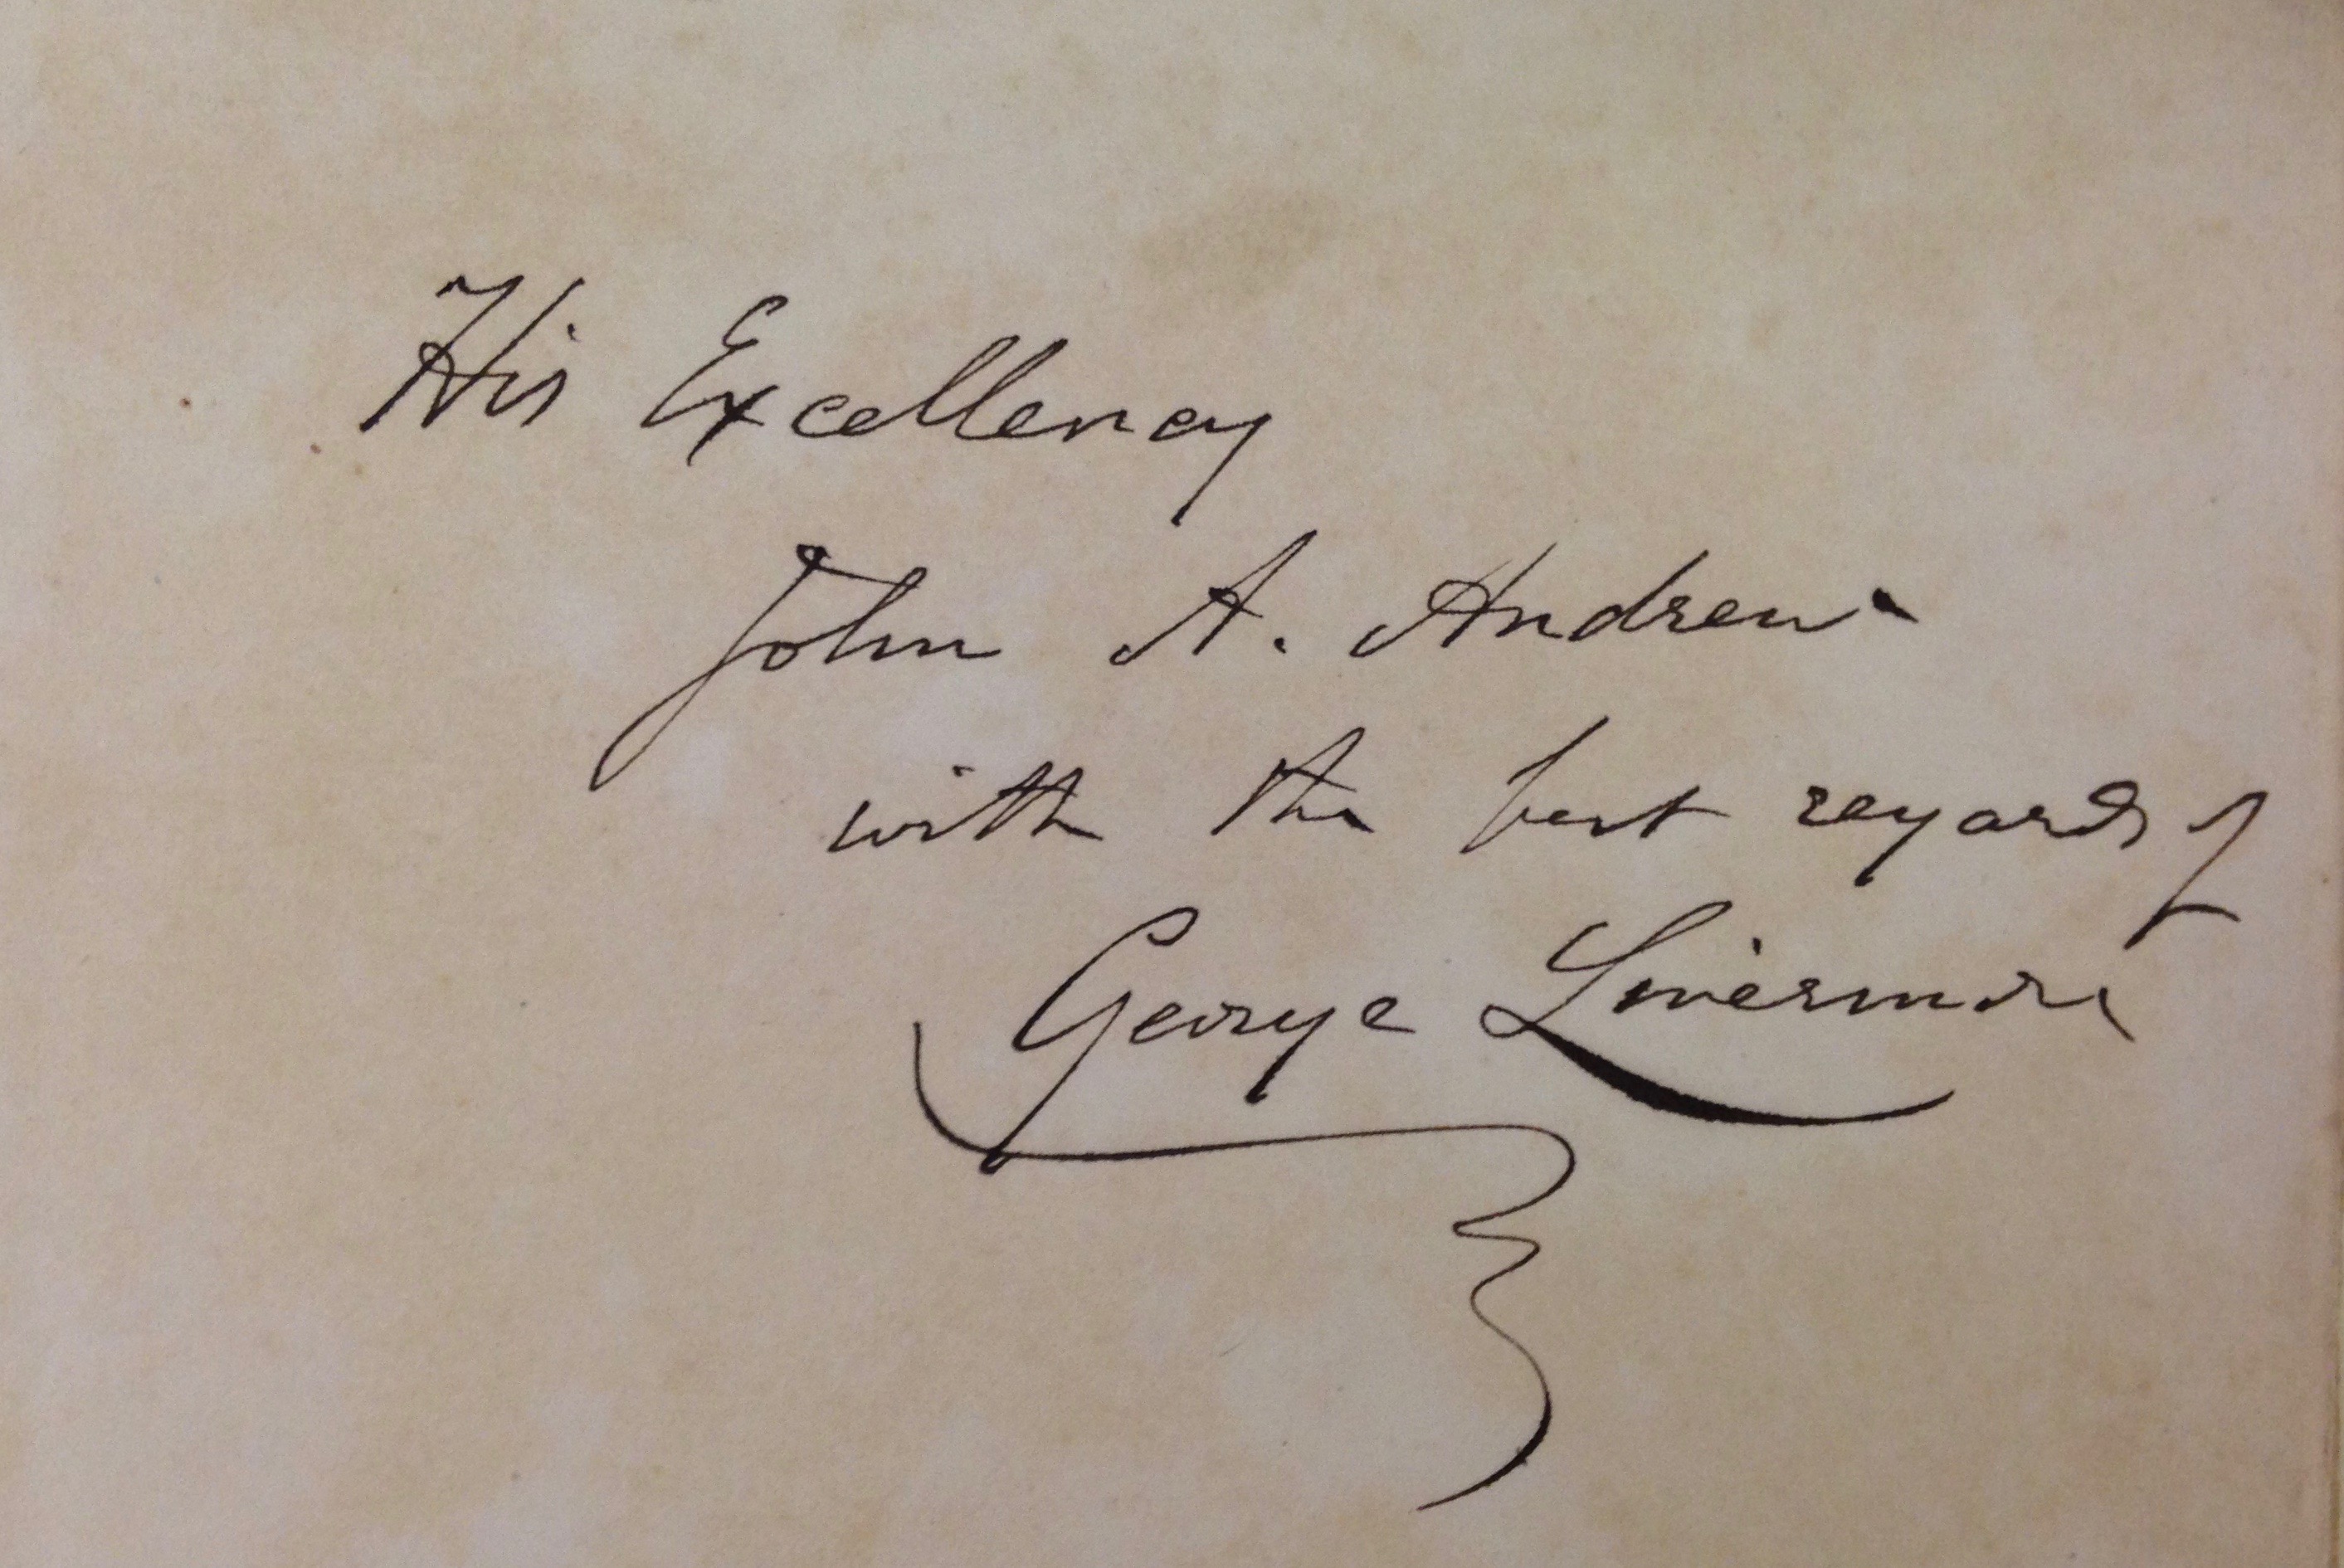 His Excellency
John A. Andrew
with the best regards of
George Livermore